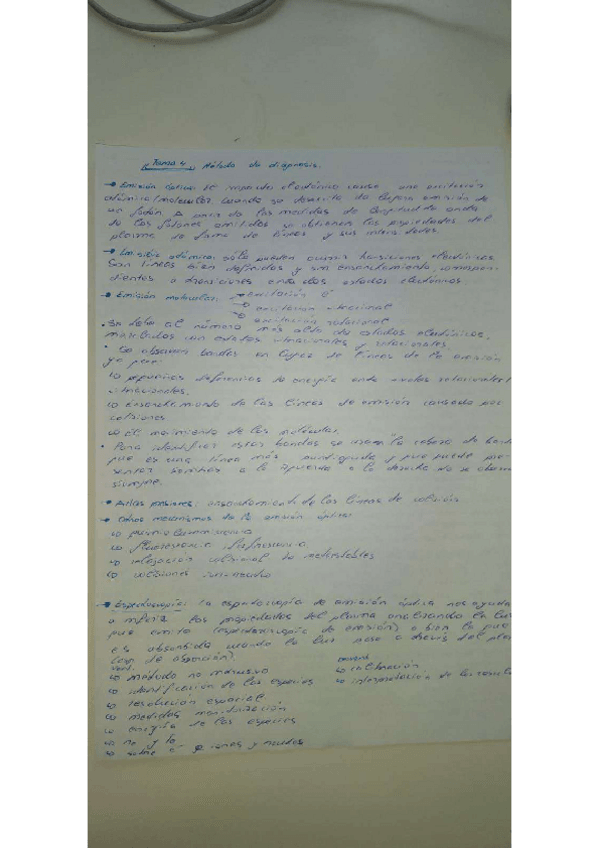 Tema 4 Método de diagnosis.
→ Emisión óptica: el impacto electrónico causa una excitación
atómica/molecular cuando se desexcita da lugar a emisión de
un fotón. A partir de las medidas de longitud de onda
de los fotones emitidos se obtienen las propiedades del
plasma de forma de líneas y sus intensidades.
→ Emisión atómica: sólo pueden ocurrir transiciones electrónicas
Son líneas bien definidas y sin ensanchamiento, correspon-
dientes a transiciones entre dos estados electrónicos.
→ Emisión molecular: → excitación e-
→ excitación vibracional
→ excitación rotacional
• Se debe al número más alto de estados electrónicos,
mezclados con estados vibracionales y rotacionales.
• Se observan bandas en lugar de líneas de la emisión
ya que:
↳ pequeñas diferencias de energía entre niveles rotacionales/
vibracionales.
↳ ensanchamiento de las líneas de emisión causado por
colisiones
↳ el movimiento de las moléculas.
• Para identificar estas bandas se usa "la cabeza de banda
que es una línea más puntiaguda y que puede pre-
sentar sombra a la izquierda o la derecha no se observa
siempre.
→ Altas presiones: ensanchamiento de las líneas de colisión
→ Otros mecanismos de la emisión óptica:
↳ quimioluminiscencia
↳ fluorescencia / fosforescencia
↳ relajación colisional de metaestables
↳ colisiones ion-neutro
→ Espectroscopía: la espectroscopía de emisión óptica nos ayuda
a inferir las propiedades del plasma analizando la luz
que emite (espectroscopía de emisión) o bien la que
es absorbida cuando la luz pasa a través del plasma
(esp. de absorción).
↳ método no invasivo ↳ calibración
↳ identificación de las especies ↳ interpretación de los resultados
↳ resolución espacial
↳ medidas monitorización
↳ energía de las especies
↳ ne y Te
↳ sobre e- iones y neutros